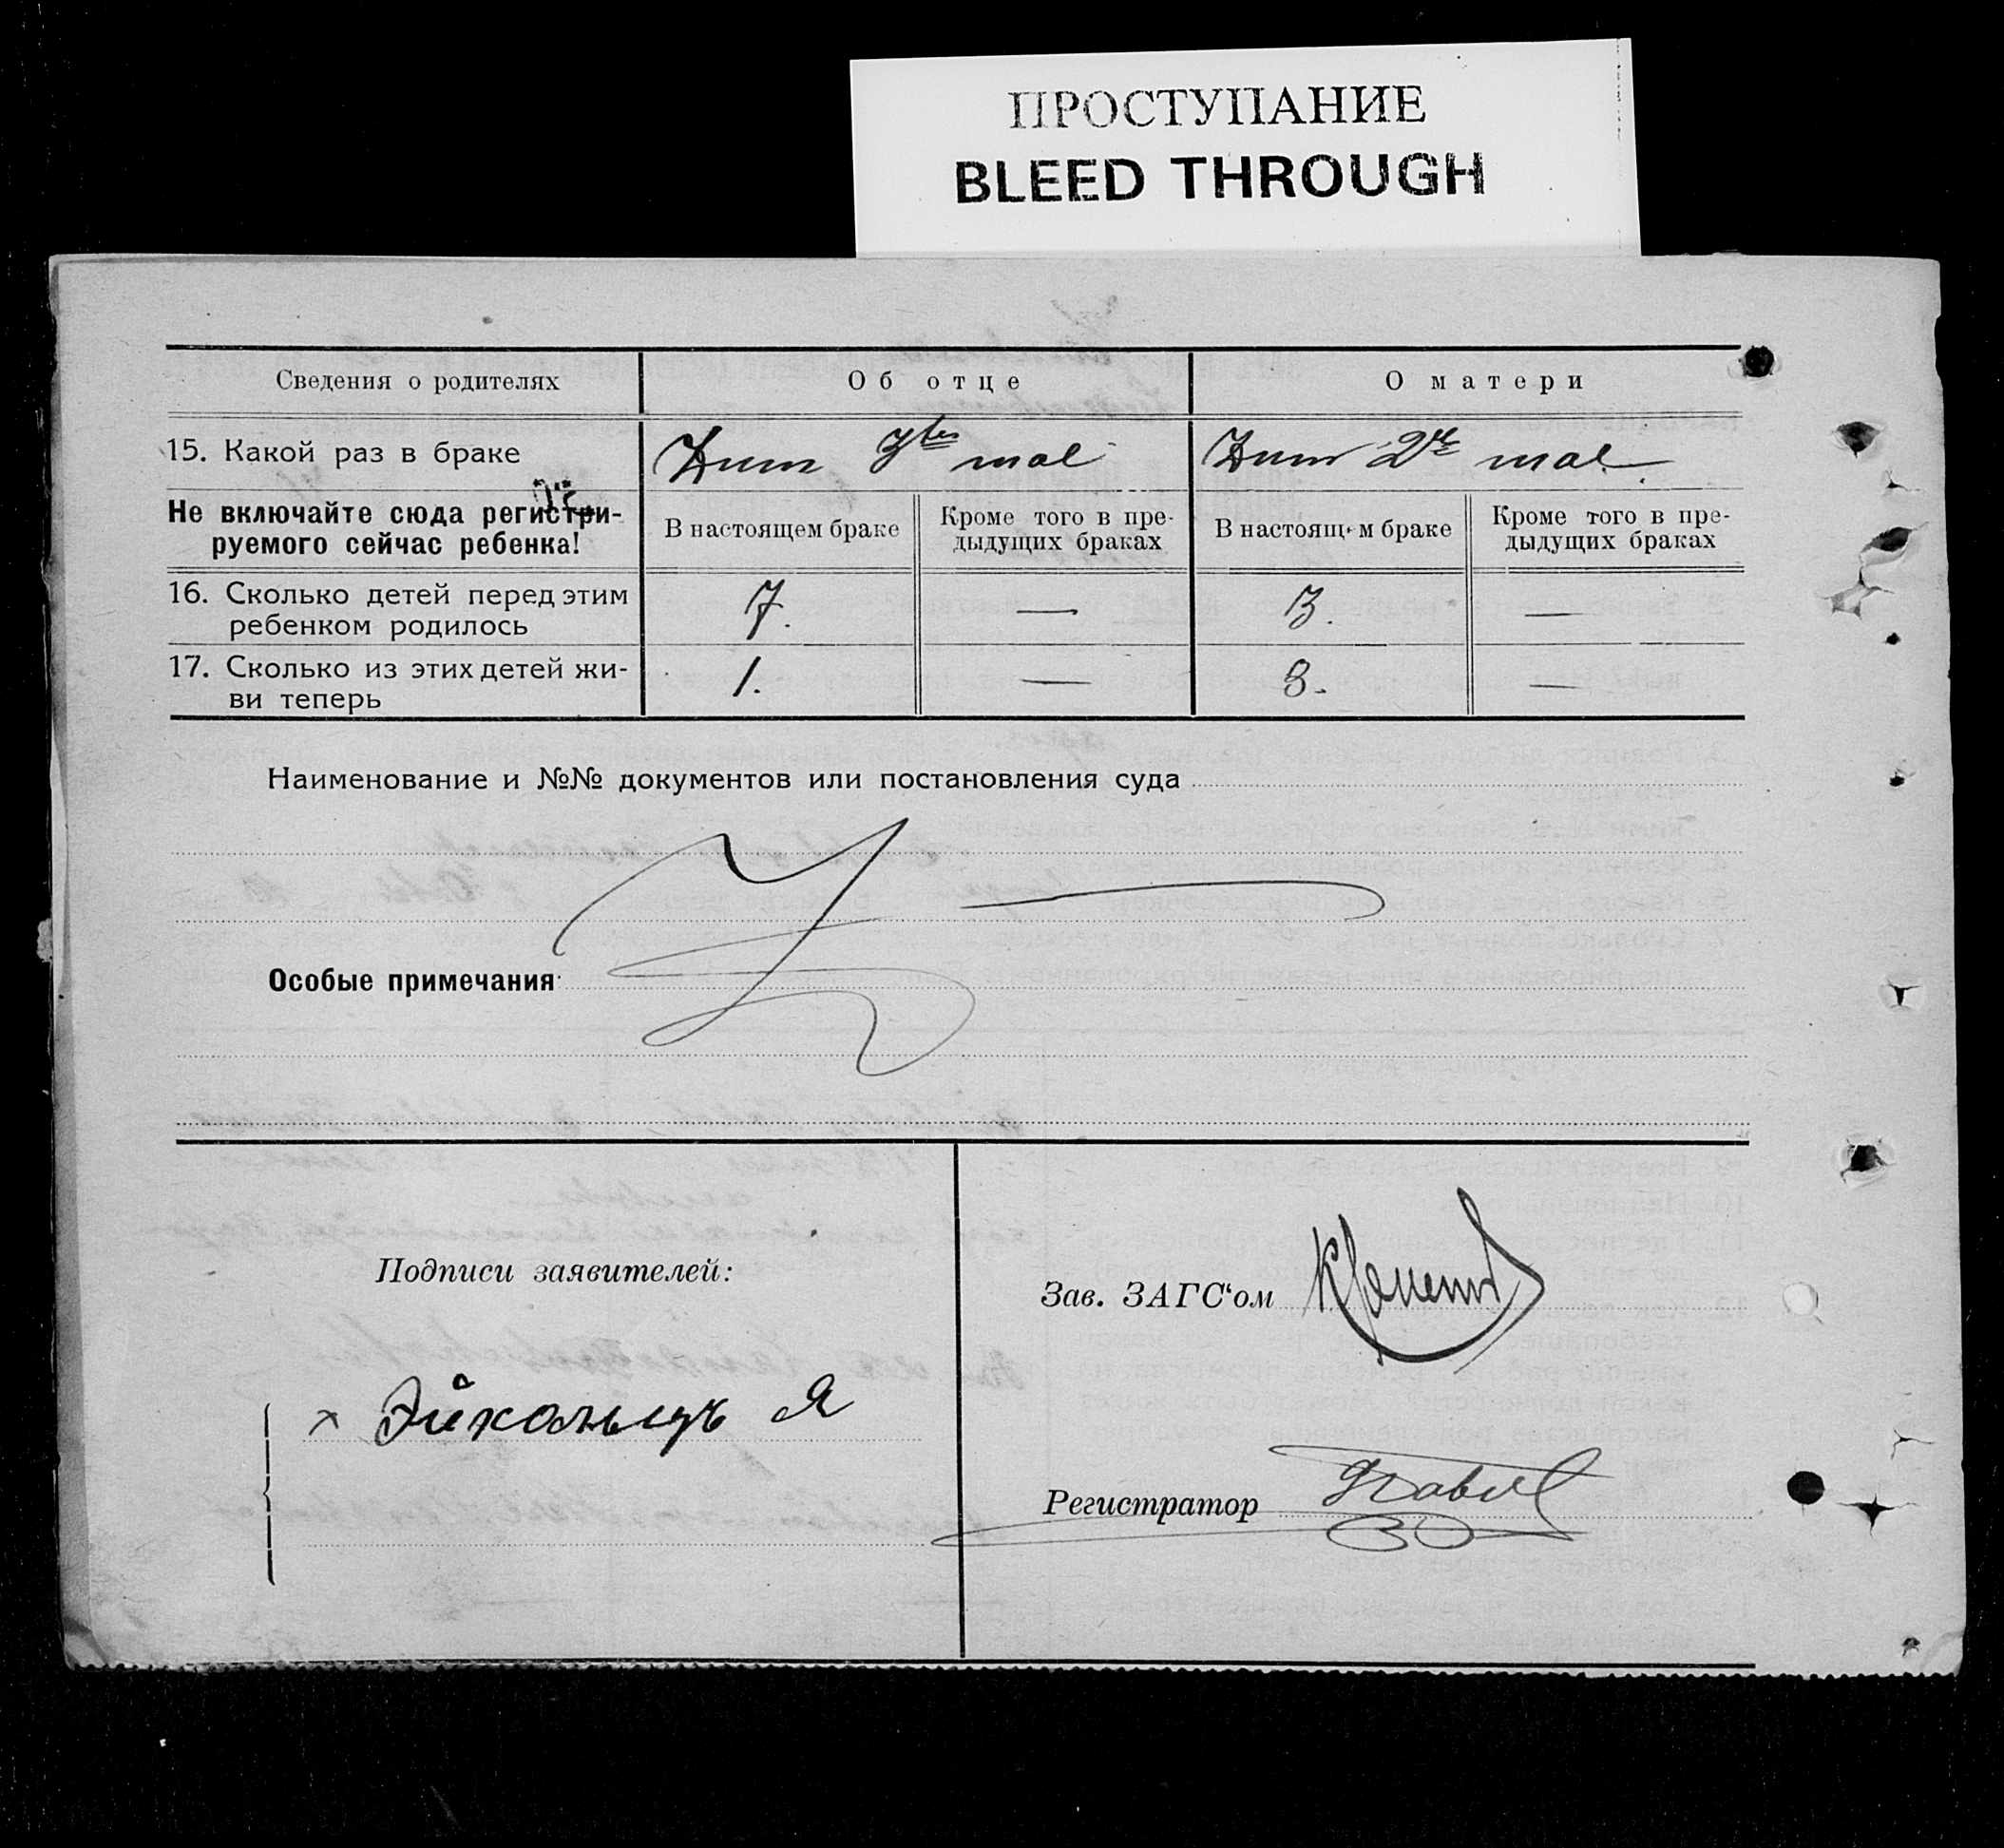 ПРОСТУПАНИЕ
BLEED THROUGH
Сведения о родителях
Об отце
О матери
15. Какой раз в браке
Zum 3ten mal
Zum 2te mal
Не включайте сюда регистри-
руемого сейчас ребенка!
В настоящем браке
Кроме того в пре-
дыдущих браках
В настоящем браке
Кроме того в пре-
дыдущих браках
16. Сколько детей перед этим
ребенком родилось
7. — 3. —
17. Сколько из этих детей жи-
ви теперь
1. — 3. —
Наименование и №№ документов или постановления суда
Особые примечания
Подписи заявителей:
Зав. ЗАГС‘ом
х Эйхольцъ Я
Регистратор